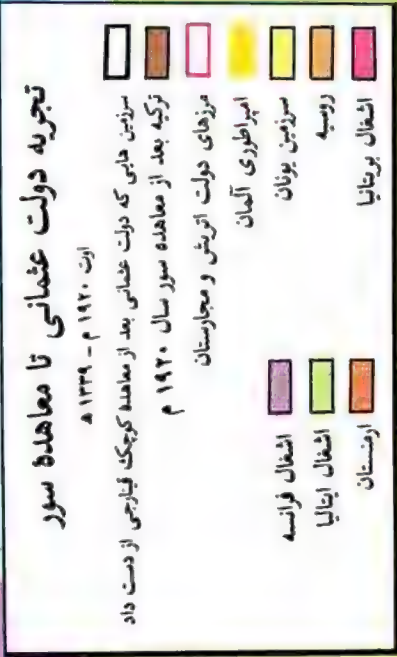 تجزیه دولت عثمانی تا معاهده سور
اوت ۱۹۲۰ م - ۱۳۳۹ ه
سرزمین هایی که دولت عثمانی بعد از معاهده کوچک قینارجی از دست داد
ترکیه بعد از معاهده سور سال ۱۹۲۰ م
مرزهای دولت اتریش و مجارستان
امپراطوری آلمان
سرزمین یونان
روسیه
اشغال بریتانیا
اشغال فرانسه
اشغال ایتالیا
ارمنستان